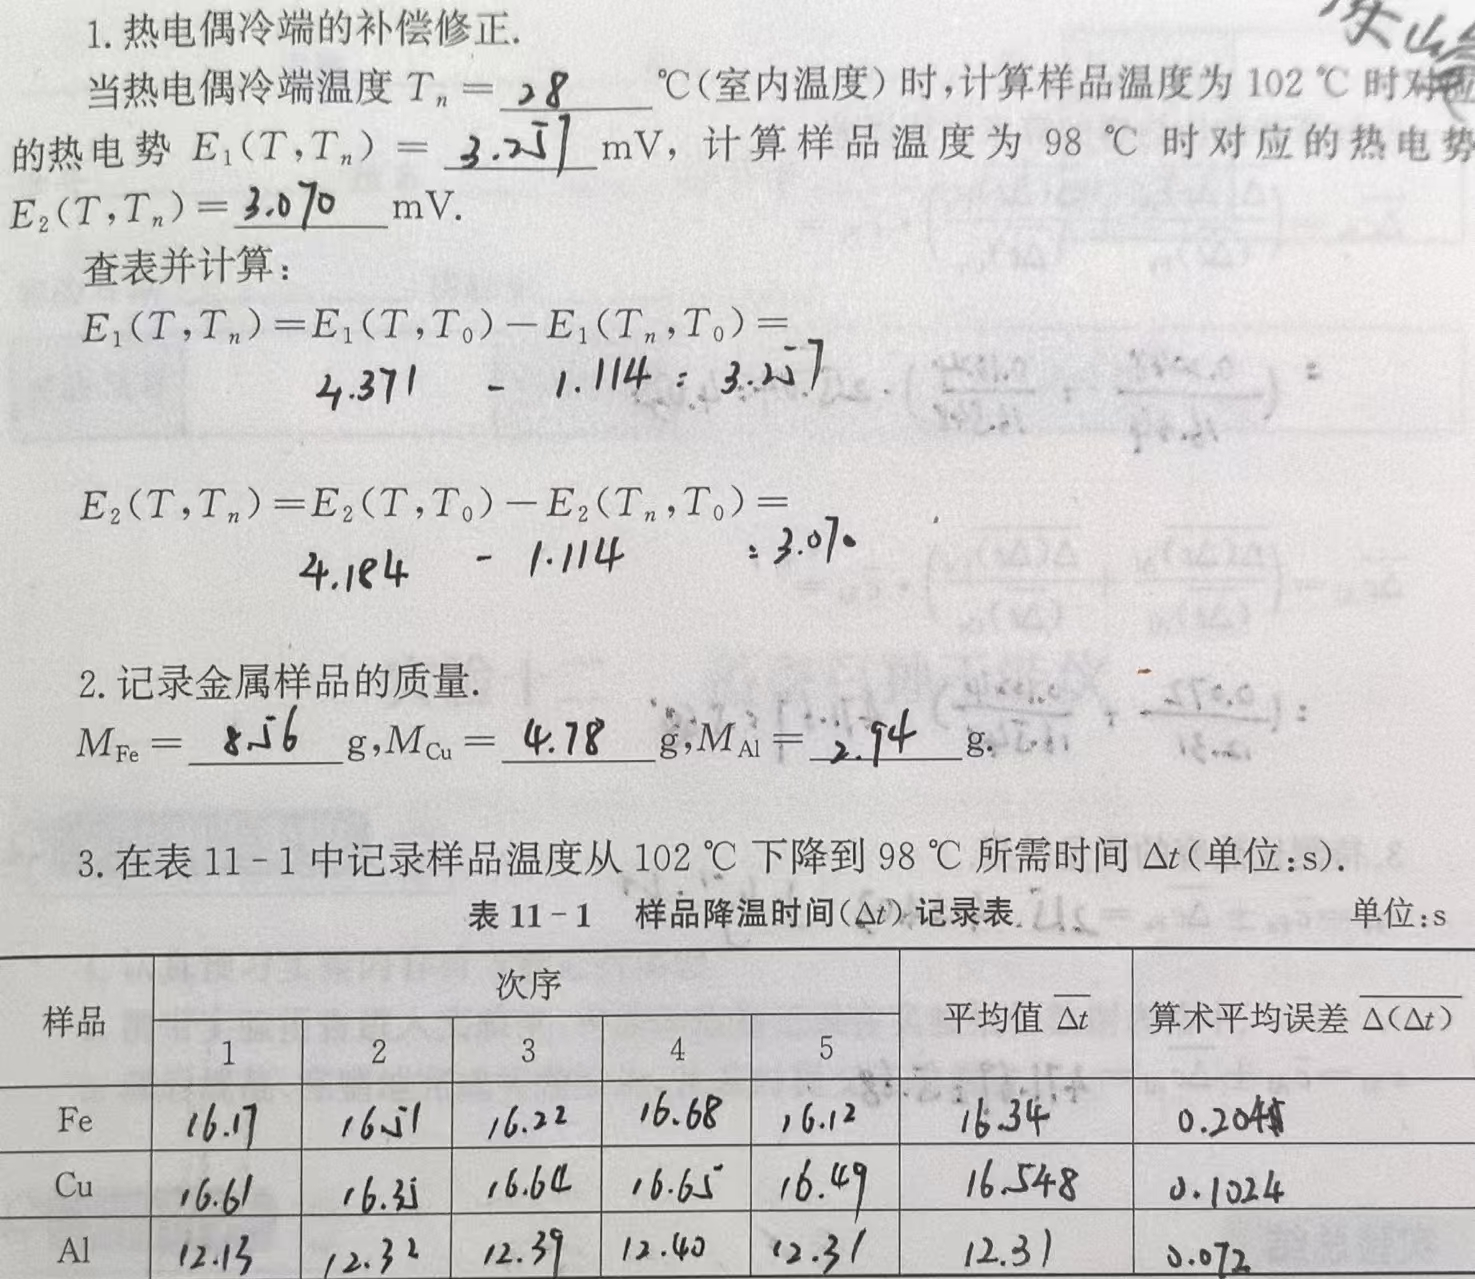 1. 热电偶冷端的补偿修正.
当热电偶冷端温度 Tₙ = 28 ℃(室内温度)时,计算样品温度为 102 ℃ 时对应
的热电势 E₁(T,Tₙ) = 3.257 mV, 计算样品温度为 98 ℃ 时对应的热电势
E₂(T,Tₙ)=3.070 mV.
查表并计算:
E₁(T,Tₙ)=E₁(T,T₀)-E₁(Tₙ,T₀)=
4.371 - 1.114 = 3.257
E₂(T,Tₙ)=E₂(T,T₀)-E₂(Tₙ,T₀)=
4.184 - 1.114 = 3.070
2. 记录金属样品的质量.
M_Fe = 8.56 g,M_Cu = 4.78 g,M_Al = 2.94 g.
3. 在表 11-1 中记录样品温度从 102 ℃ 下降到 98 ℃ 所需时间 Δt(单位:s).
表 11-1 样品降温时间(Δt)记录表 单位:s
样品 次序 平均值 Δt 算术平均误差 Δ(Δt)
1 2 3 4 5
Fe 16.17 16.51 16.22 16.68 16.12 16.34
Cu 16.61 16.35 16.64 16.65 16.49 16.548 0.1024
Al 12.13 12.32 12.39 12.40 12.31 12.31 0.072